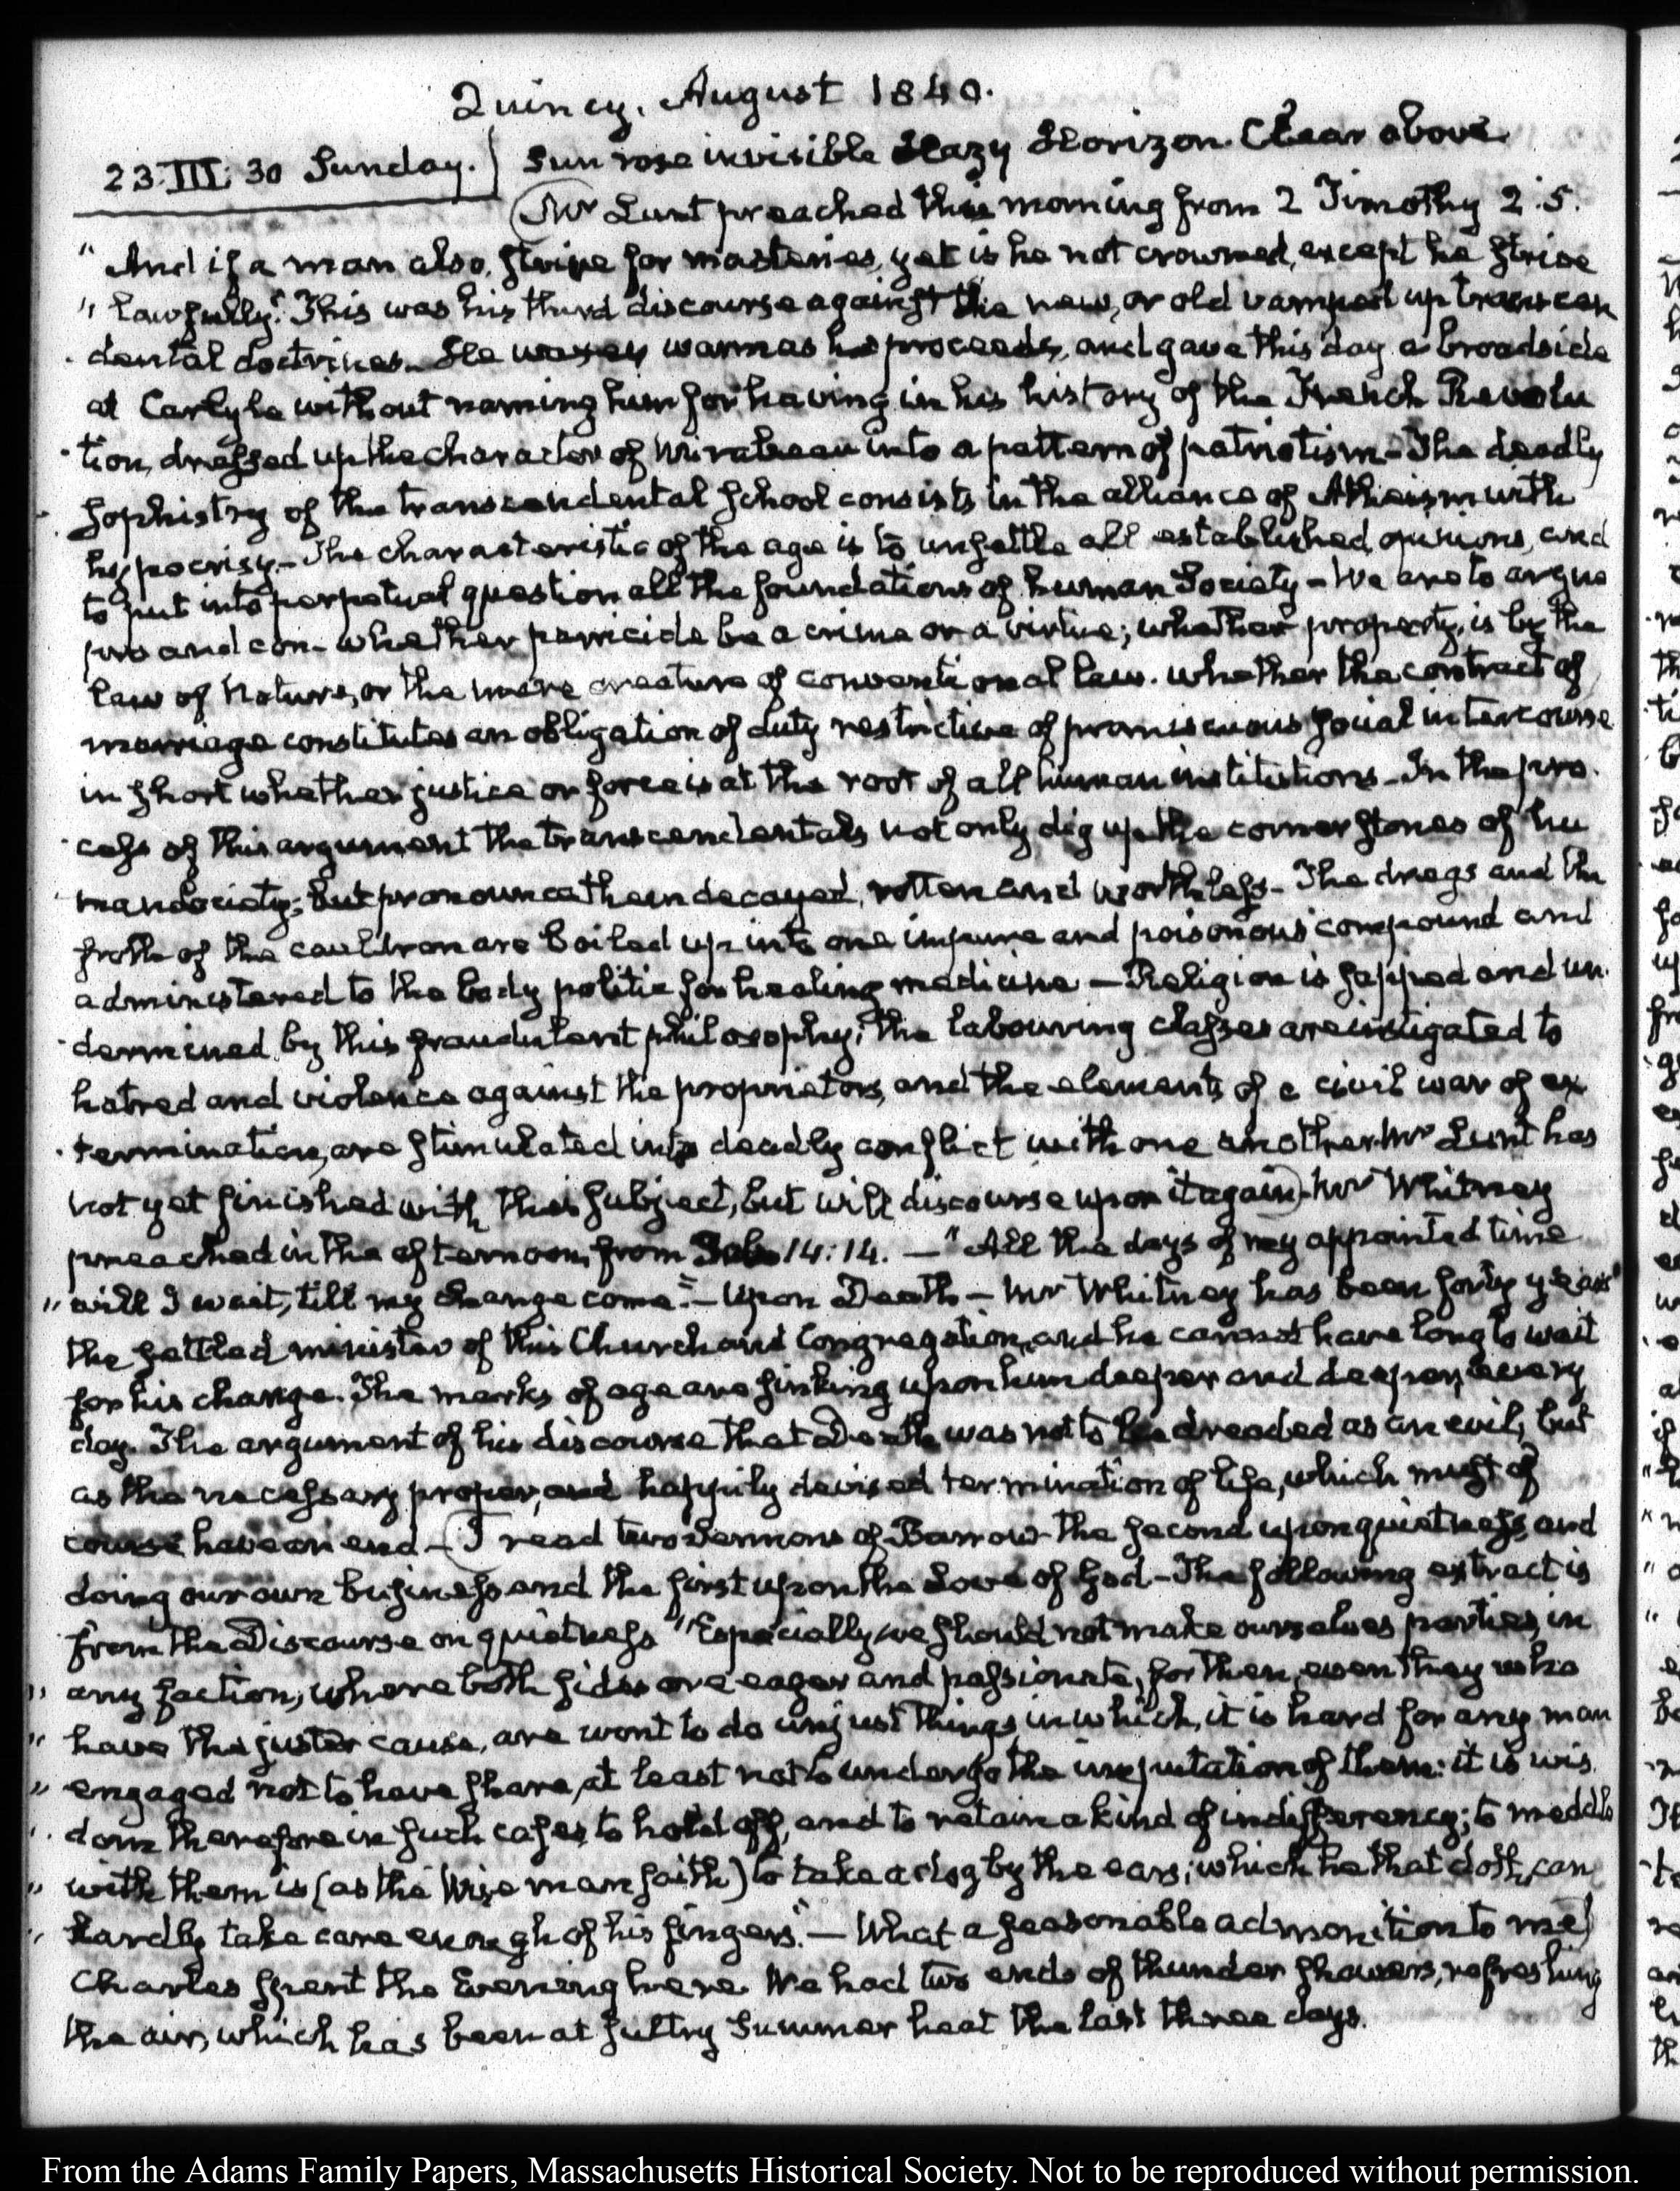 Quincy, August 1840.
23. III: 30 Sunday.) Sun rose invisible Hazy Horizon. Clear above
(Mr Lunt preached this morning from 2 Timothy 2.5.
"And if a man also, strive for masteries, yet is he not crowned, except he strive
" lawfully." This was his third discourse against the new, or old vamped up transcen
dental doctrines. He waxes warm as he proceeds, and gave this day a broadside
at Carlyle without naming him for having in his history of the French Revolu
tion, dressed up the character of Mirabeau into a pattern of patriotism - The deadly
sophistry of the transcendental school consists in the alliance of Atheism with
hypocrisy. - The characteristic of the age is to unsettle all established opinions, and
to put into perpetual question all the foundations of human Society - We are to argue
pro and con - whether parricide be a crime or a virtue; whether property, is by the
law of Nature, or the mere creature of conventional law. whether the contract of
marriage constitutes an obligation of duty restrictive of promiscuous social intercourse
in short whether justice or force is at the root of all human institutions - In the pro
cess of this argument the transcendentals not only dig up the corner stones of hu
man society; but pronounce them decayed, rotten and worthless - The dregs and the
froth of the cauldron are boiled up into one impure and poisonous compound and
administered to the body politic for healing medicine - Religion is sapped and un
dermined by this fraudulent philosophy; the labouring classes are instigated to
hatred and violence against the proprietors, and the elements of a civil war of ex
termination, are stimulated into deadly conflict with one another. Mr Lunt has
not yet finished with this subject, but will discourse upon it again) - Mr Whitney
preached in the afternoon, from Job 14:14. - "All the days of my appointed time
" will I wait, till my change come." - Upon Death - Mr Whitney has been forty years
the settled minister of this Church and Congregation, and he cannot have long to wait
for his change. The marks of age are sinking upon him deeper and deeper, every
day. The argument of his discourse that Death was not to be dreaded as an evil, but
as the necessary proper, and happily devised termination of life, which must of
course have an end - (I read two Sermons of Barrow the second upon quietness, and
doing our own business and the first upon the Love of God - The following extract is
from the Discourse on quietness "Especially we should not make ourselves parties, in
" any faction, where both sides are eager and passionate, for then, even they who
" have the juster cause, are wont to do unjust things in which, it is hard for any man
" engaged not to have share, at least not to undergo the imputation of them: it is wis
" dom therefore in such cases, to hold off, and to retain a kind of indifferency; to meddle
" with them is (as the Wise man saith) to take a dog by the ears; which he that doth, can
" hardly take care enough of his fingers." - What a seasonable admonition to me)
Charles spent the Evening here. We had two ends of thunder showers, refreshing
the air, which has been at sultry Summer heat the last three days.
From the Adams Family Papers, Massachusetts Historical Society. Not to be reproduced without permission.